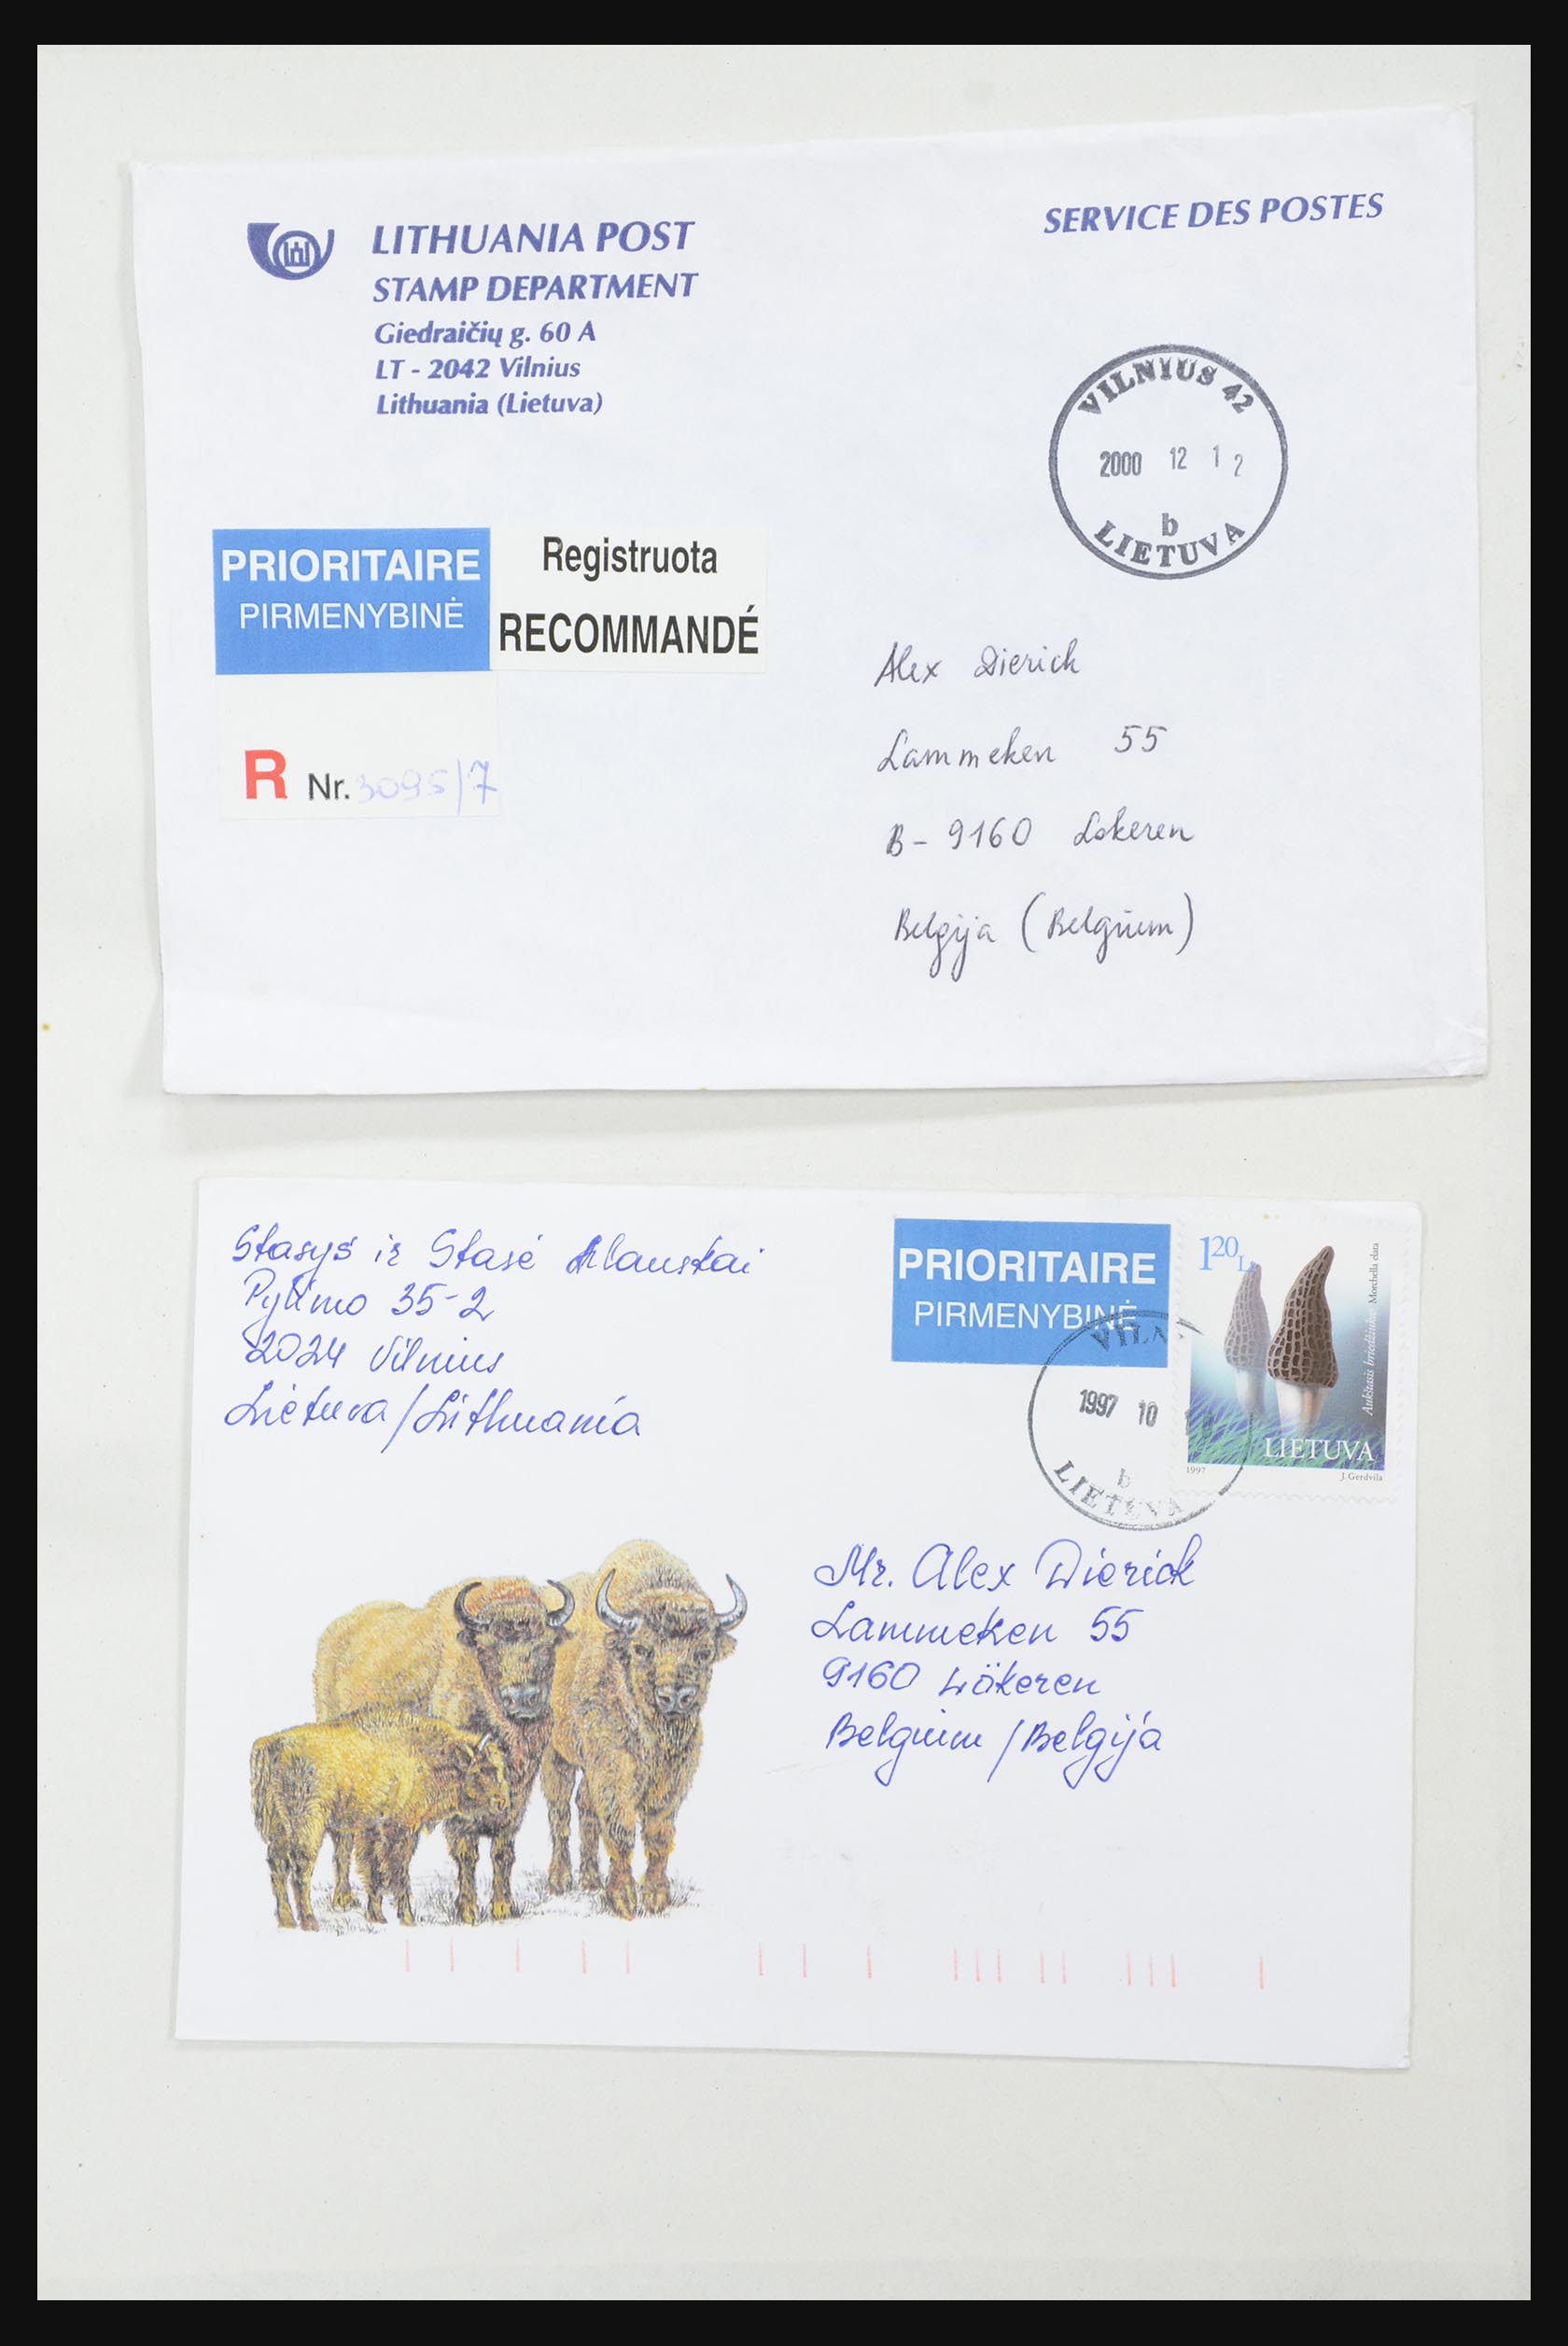 LITHUANIA POST
STAMP DEPARTMENT
Giedraičių g. 60 A
LT - 2042 Vilnius
Lithuania (Lietuva)
SERVICE DES POSTES
VILNIUS 42
2000 12 12
b
LIETUVA
PRIORITAIRE
PIRMENYBINĖ
Registruota
RECOMMANDÉ
R Nr. 3095/7
Alex Dierick
Lammeken 55
B - 9160 Lokeren
Belgija (Belgium)
Stasys ir Stasė
Pylimo 35-2
2024 Vilnius
Lietuva/Lithuania
PRIORITAIRE
PIRMENYBINĖ
VILN
1997 10
b
LIETUVA
120 Lt
Aukštasis briedžiukas Morchella elata
LIETUVA
1997
J. Gerdvila
Mr. Alex Dierick
Lammeken 55
9160 Lökeren
Belgium/Belgija